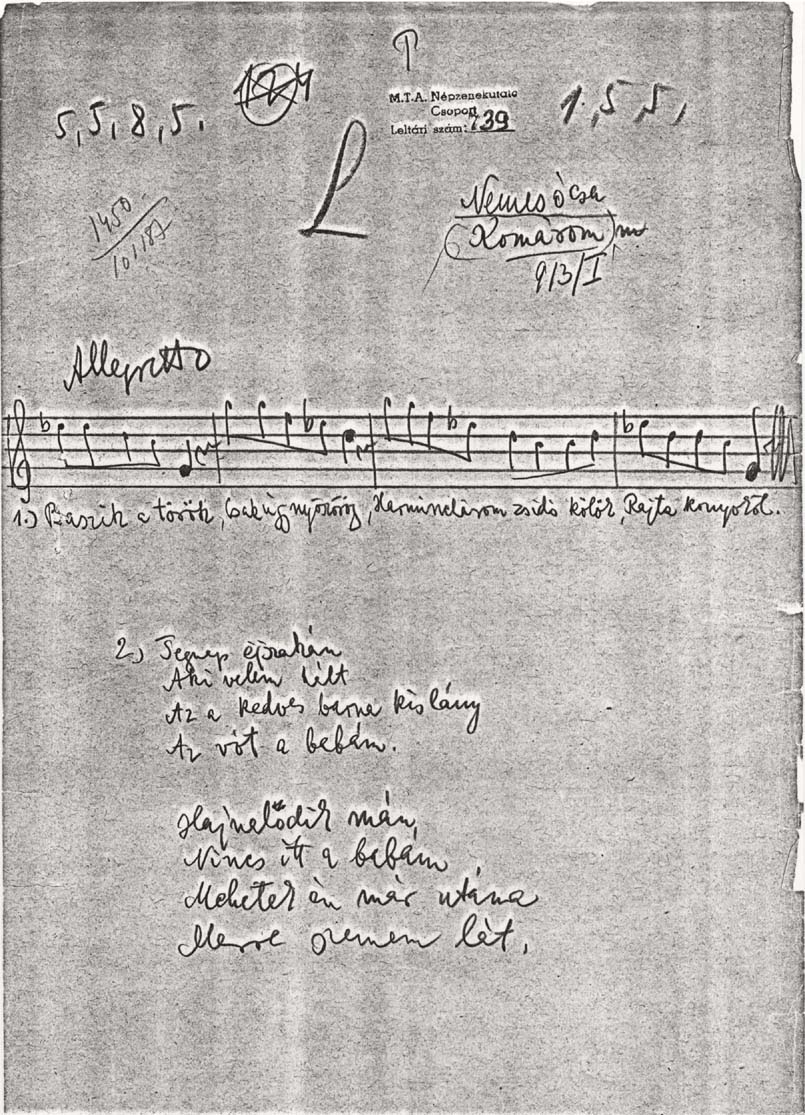 5, 5, 8, 5.
124
M.T.A. Népzenekutató
Csoport
Leltári szám: 739
1, 5, 5,
L
1450
101187
Nemesócsa
Komárom m
9/3/I
Allegretto
1.) a török, csak úgy nyöszörög, Harminchárom zsidó kölök, Rajta könyöröl.
2.) Tegnap éjszakán
Aki velem hált
Az a kedves barna kislány
Az vót a babám.
Hajnalödik mán,
Nincs itt a babám
Mehetek én már utána
Merre szemem lát.